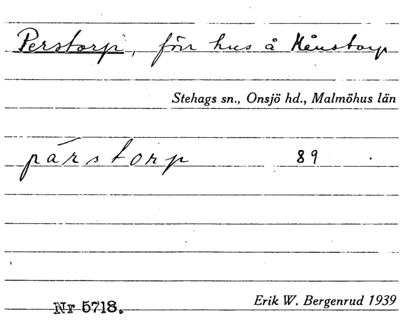 Perstorp, förr hus å Månstorp
Stehags sn., Onsjö hd., Malmöhus län
pärstorp 89
Nr 5718. Erik W. Bergenrud 1939